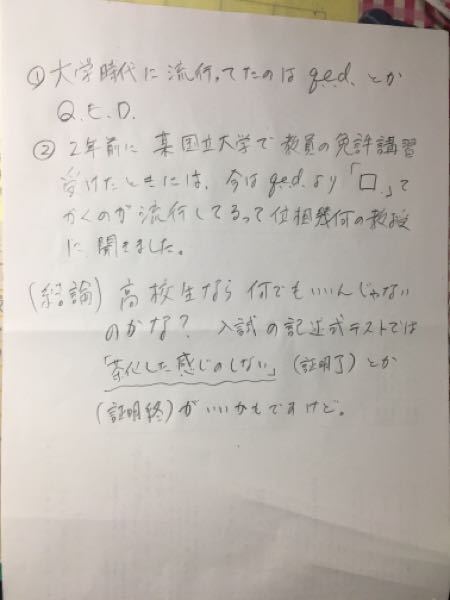 ① 大学時代に流行ってたのは q.e.d. とか
Q.E.D.
② 2年前に某国立大学で教員の免許講習
受けたときには、今は q.e.d. より「□.」て
かくのが流行してるって位相幾何の教授
に聞きました。
(結論) 高校生なら何でもいいんじゃない
のかな? 入試の記述式テストでは
「茶化した感じのしない」(証明了)とか
(証明終)がいいかもですけど。